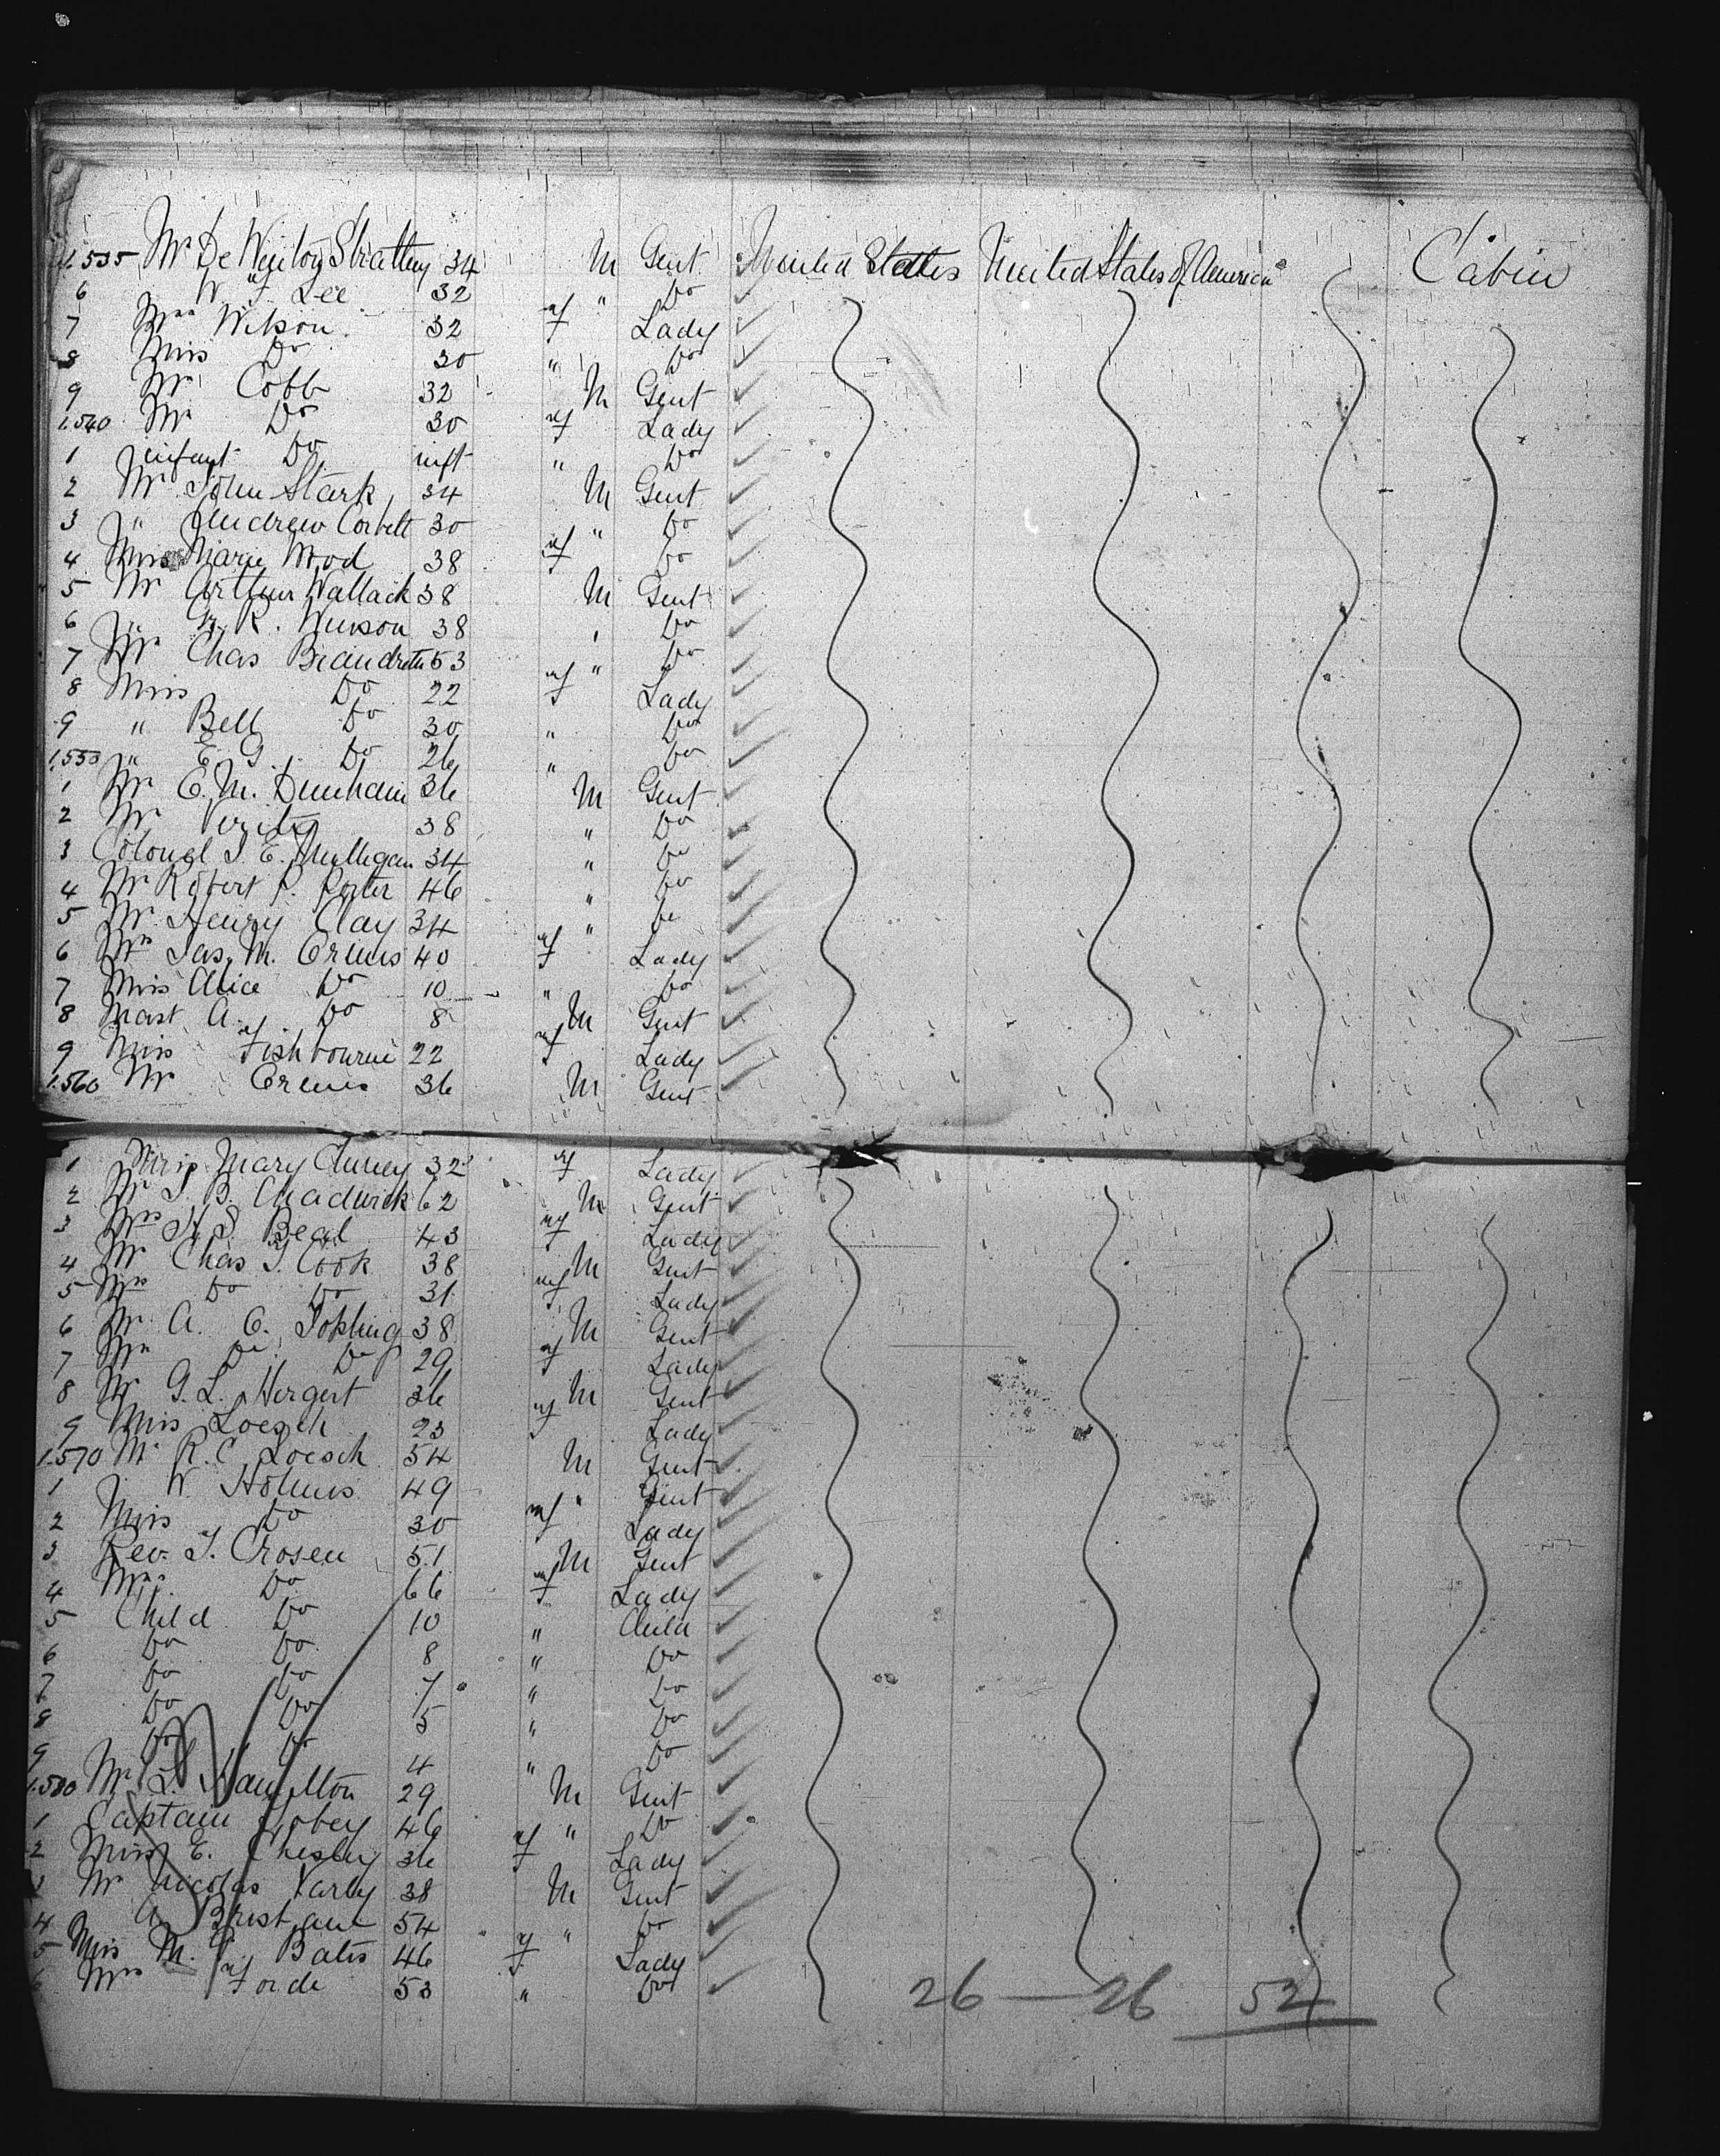 1.535 Mr De Winton Strattery 34 M Gent United States United States of America Cabin
6 W. F. Lee 32 " Do
7 Mrs Wilson 32 f Lady
8 Miss Do 30 " Do
9 Mr Cobb 32 M Gent
1.540 Mr Do 30 f Lady
1 infant Do inft " Do
2 Mr John Stark 34 M Gent
3 " Andrew Corbett 30 " Do
4 Miss Marie Wood 38 f Do
5 Mr Arthur Wallack 38 M Gent
6 " R. 38 " Do
7 Mr Chas Brandreth 53 " Do
8 Miss Do 22 f Lady
9 " Bell Do 30 " Do
1.550 " E. G. Do 26 " Do
1 Mr E. M. Dunham 36 M Gent
2 Mr Verity 38 " Do
3 Colonel J. E. Mulligan 34 " Do
4 Mr Robert P. Porter 46 " Do
5 Mr Henry Clay 34 " Do
6 Mrs Jas. M. Crems 40 f Lady
7 Miss Alice Do 10 " Do
8 Mast A. Do 8 M Gent
9 Miss Fishbourne 22 f Lady
1.560 Mr Crems 36 M Gent
1 Miss Mary 32 f Lady
2 Mr J. B. Chadwick 62 M Gent
3 Mrs H. S. Beal 43 f Lady
4 Mr Chas T. Cook 38 M Gent
5 Mrs Do Do 31 f Lady
6 Mr A. C. Jopling 38 M Gent
7 Mrs Do Do 29 f Lady
8 Mr G. L. Hergert 36 M Gent
9 Miss Loesch 23 f Lady
1.570 Mr R. C. Loesch 54 M Gent
1 W. Holmes 49 " Gent
2 Miss Do 30 f Lady
3 Rev. T. Crosen 51 M Gent
4 Mrs Do 66 f Lady
5 Child Do 10 " Child
6 Do Do 8 " Do
7 Do Do 7 " Do
8 Do Do 5 " Do
9 Do Do 4 " Do
1.580 Mr L. Hamilton 29 M Gent
1 Captain Tobey 46 " Do
2 Miss E. Chesley 36 f Lady
3 Mr Nicolas Varley 38 M Gent
4 A. 54 " Do
5 Miss M. C. Bates 46 f Lady
6 Mrs Forde 53 " Do
26 — 26 52